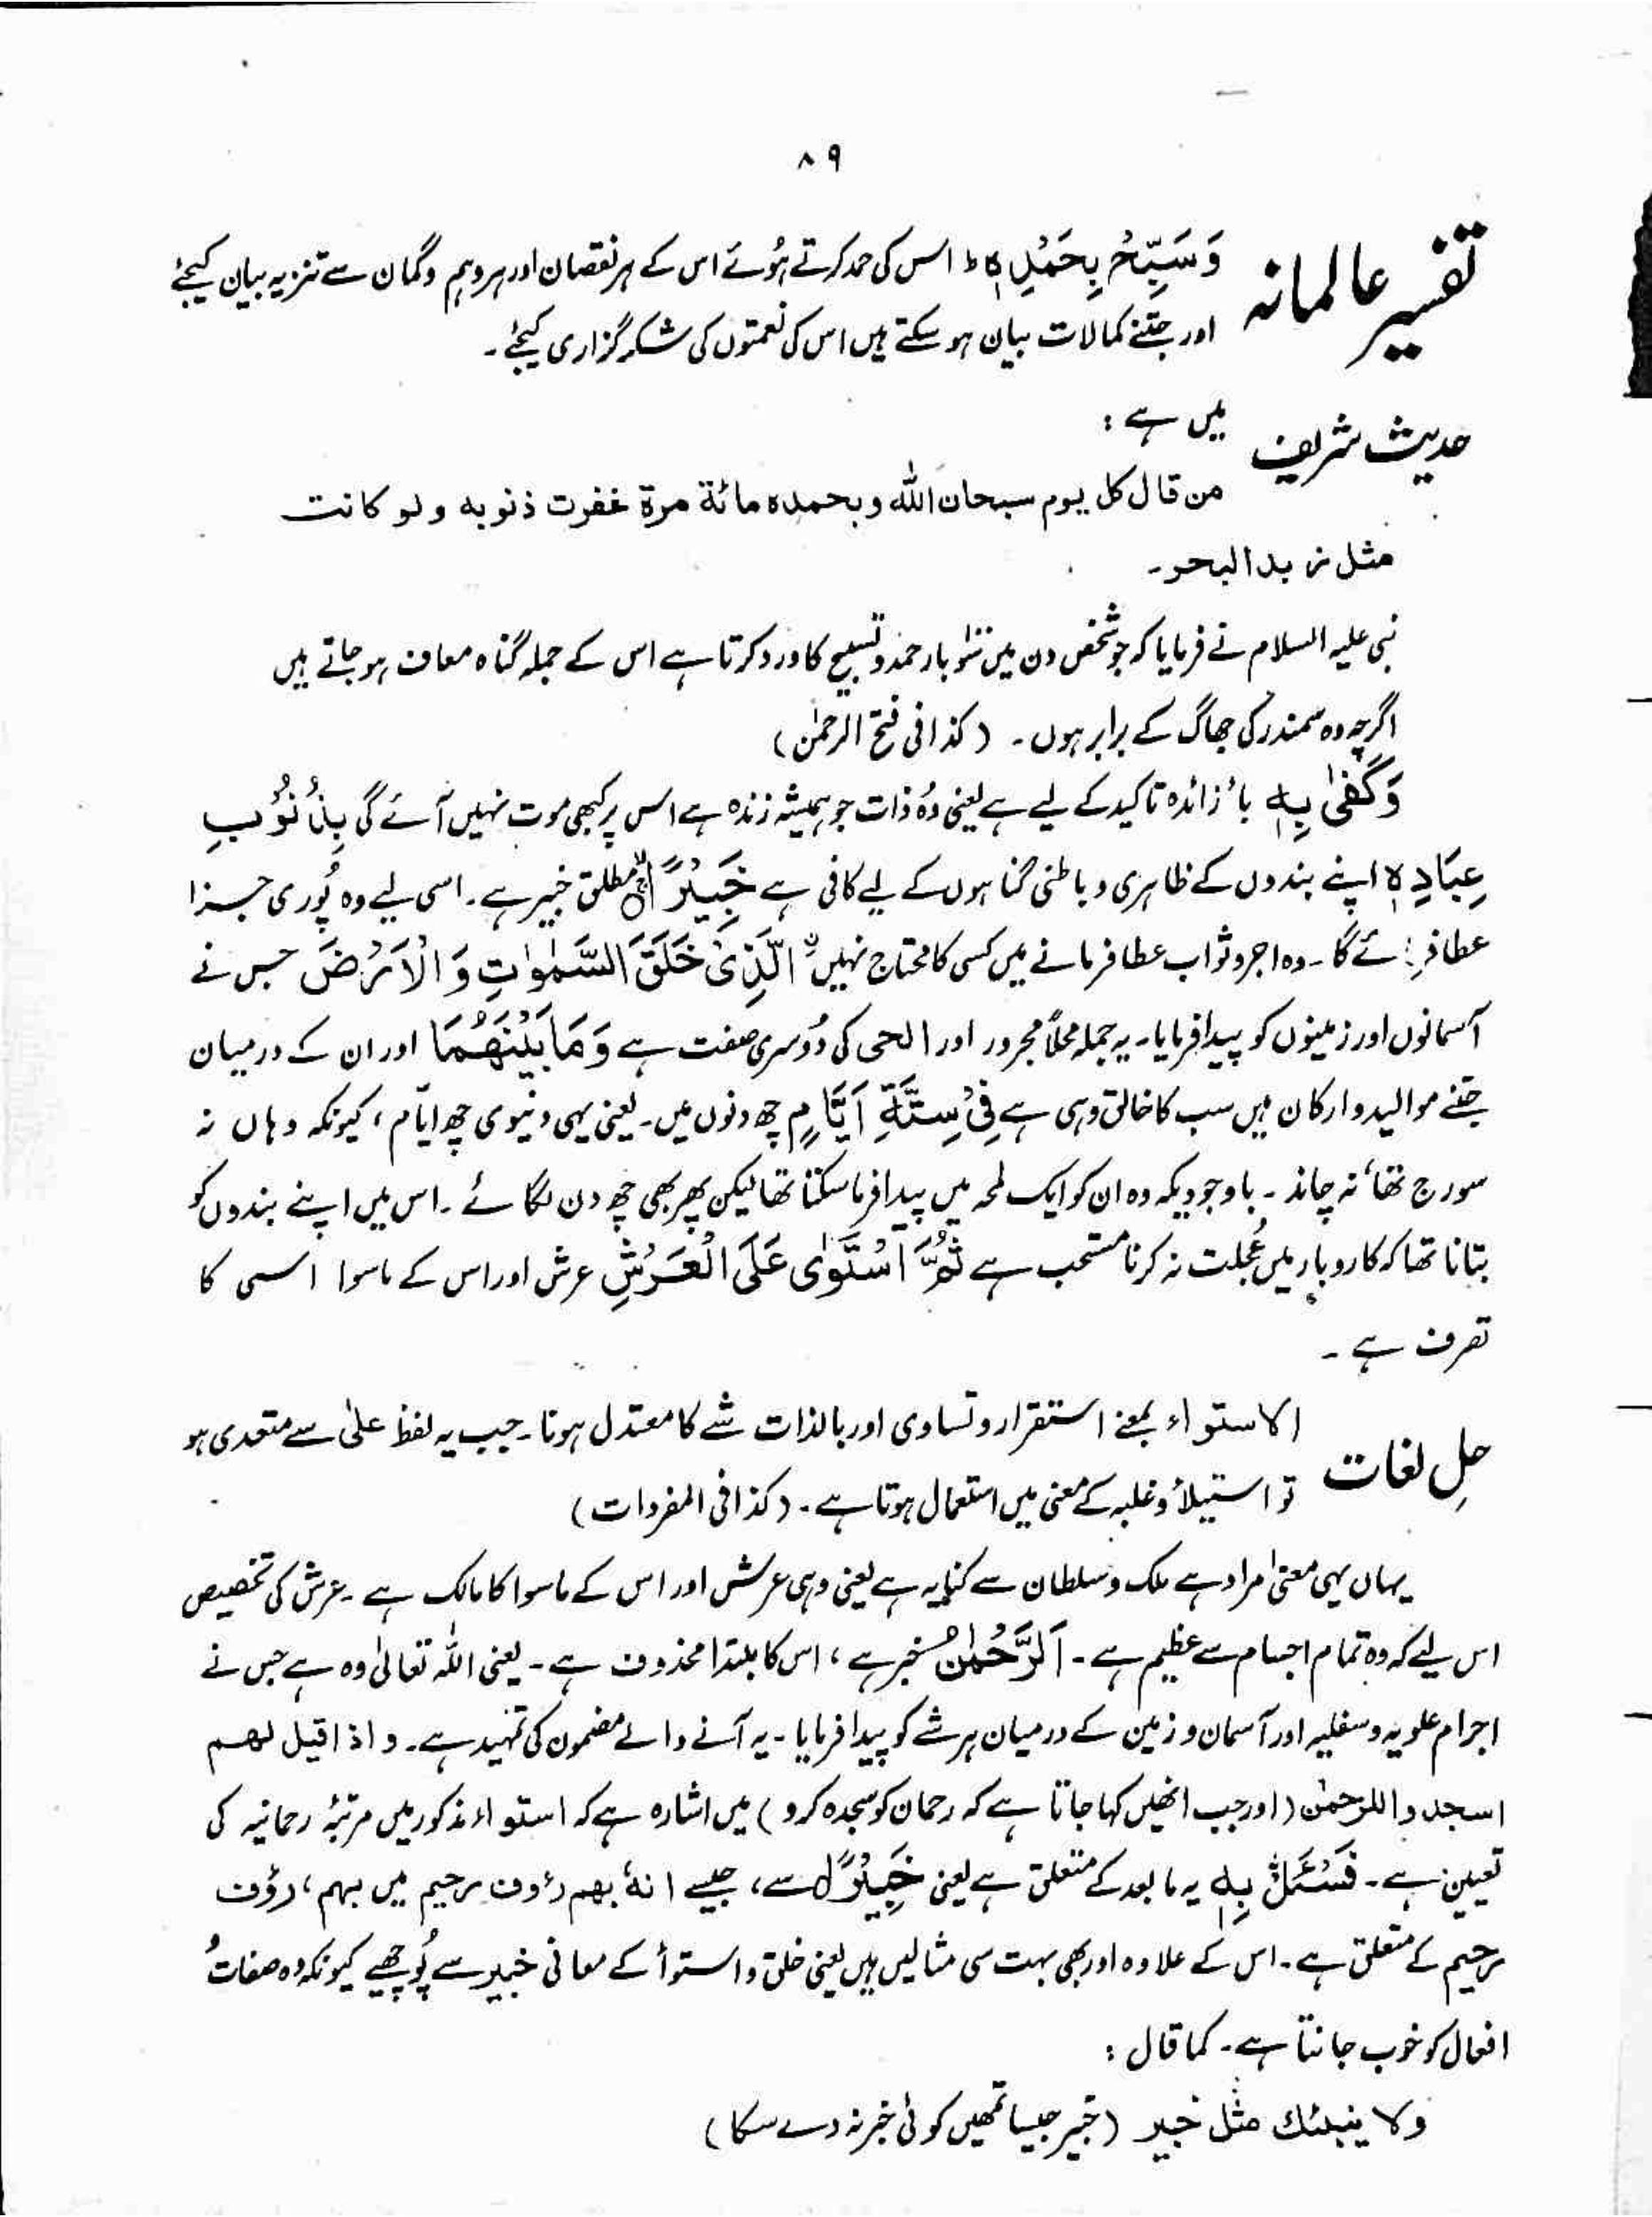 ۸۹
تفسیر عالمانہ وَسَبِّحْ بِحَمْدِهٖ ط اس کی حمد کرتے ہُوئے اس کے ہر نقصان اور ہر وہم و گمان سے تنزیہ بیان کیجئے
اور جتنے کمالات بیان ہو سکتے ہیں اس کی نعمتوں کی شکر گزاری کیجئے ۔
حدیث شریف میں ہے :
من قال کل یوم سبحان اللّٰه وبحمدہ مائة مرة غفرت ذنوبه ولو کانت
مثل زبد البحر ۔
نبی علیہ السلام نے فرمایا کہ جو شخص دن میں سَو بار حمد و تسبیح کا ورد کرتا ہے اس کے جملہ گناہ معاف ہو جاتے ہیں
اگرچہ وہ سمندر کی جھاگ کے برابر ہوں ۔ (کذا فی فتح الرحمٰن)
وَكَفٰى بِهٖ باُ زائدہ تاکید کے لیے ہے یعنی وُہ ذات جو ہمیشہ زندہ ہے اس پر کبھی موت نہیں آئے گی بِذُنُوْبِ
عِبَادِهٖ اپنے بندوں کے ظاہری و باطنی گناہوں کے لیے کافی ہے خَبِیْرًا مطلق خبیر ہے ۔ اسی لیے وہ پُوری جزا
عطا فرمائے گا ۔ وہ اجر و ثواب عطا فرمانے میں کسی کا محتاج نہیں الَّذِیْ خَلَقَ السَّمٰوٰتِ وَ الْاَرْضَ جس نے
آسمانوں اور زمینوں کو پیدا فرمایا ۔ یہ جملہ محلاً مجرور اور الحی کی دُوسری صفت ہے وَمَا بَیْنَهُمَا اور ان کے درمیان
جتنے موالید و ارکان ہیں سب کا خالق وہی ہے فِیْ سِتَّةِ اَیَّامٍ چھ دنوں میں ۔ یعنی یہی دنیوی چھ ایّام ، کیونکہ وہاں نہ
سورج تھا ، نہ چاند ۔ باوجودیکہ وہ ان کو ایک لمحہ میں پیدا فرما سکتا تھا لیکن پھر بھی چھ دن لگائے ۔ اس میں اپنے بندوں کو
بتانا تھا کہ کاروبار میں عُجلت نہ کرنا مستحب ہے ثُمَّ اسْتَوٰى عَلَى الْعَرْشِ عرش اور اس کے ماسوا اسی کا
تصرف ہے ۔
حلِ لغات الاستواء بمعنے استقرار و تساوی اور بالذات شے کا معتدل ہونا ۔ جب یہ لفظ علیٰ سے متعدی ہو
تو استیلاُ و غلبہ کے معنی میں استعمال ہوتا ہے ۔ (کذا فی المفردات)
یہاں یہی معنیٰ مراد ہے ملک و سلطان سے کنایہ ہے یعنی وہی عرش اور اس کے ماسوا کا مالک ہے ۔ عرش کی تخصیص
اس لیے کہ وہ تمام اجسام سے عظیم ہے ۔ اَلرَّحْمٰنُ خبر ہے ، اس کا مبتدا محذوف ہے ۔ یعنی اللّٰہ تعالیٰ وہ ہے جس نے
اجرام علویہ و سفلیہ اور آسمان و زمین کے درمیان ہر شے کو پیدا فرمایا ۔ یہ آنے والے مضمون کی تمہید ہے ۔ و اذا قیل لهم
اسجدوا للرحمٰن (اور جب انھیں کہا جاتا ہے کہ رحمان کو سجدہ کرو) میں اشارہ ہے کہ استواء مذکور میں مرتبۂ رحمانیہ کی
تعیین ہے ۔ فَسْـَٔلْ بِهٖ یہ مابعد کے متعلق ہے یعنی خَبِیْرًا سے ، جیسے انهٗ بهم رءوف رحیم میں بہم ، رؤف
رحیم کے متعلق ہے ۔ اس کے علاوہ اور بھی بہت سی مثالیں ہیں یعنی خلق و استوأ کے معانی خبیر سے پُوچھیے کیونکہ وہ صفات و
افعال کو خوب جانتا ہے ۔ کما قال :
ولا ینبئك مثل خبیر (خبیر جیسا تمھیں کوئی خبر نہ دے سکا)